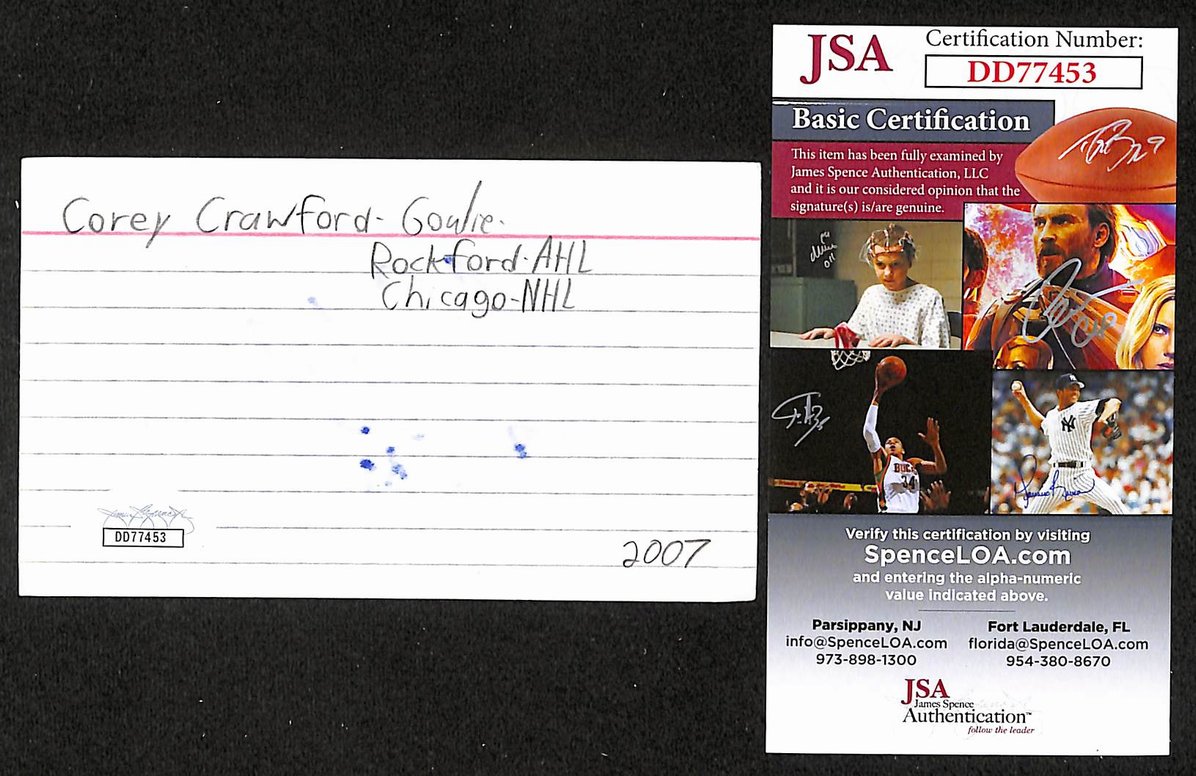 Corey Crawford- Goalie-
Rockford-AHL
Chicago-NHL
DD77453
2007
JSA
Certification Number:
DD77453
Basic Certification
This item has been fully examined by
James Spence Authentication, LLC
and it is our considered opinion that the
signature(s) is/are genuine.
NY
BUCKS
34
Verify this certification by visiting
SpenceLOA.com
and entering the alpha-numeric
value indicated above.
Parsippany, NJ
info@SpenceLOA.com
973-898-1300
Fort Lauderdale, FL
florida@SpenceLOA.com
954-380-8670
JSA
James Spence
Authentication™
follow the leader